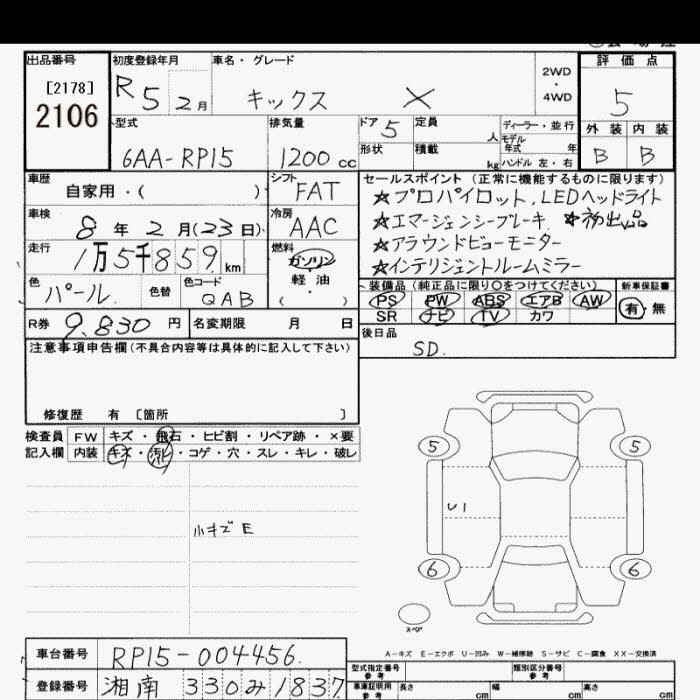 出品番号
[2178]
2106
初度登録年月
R5 2月
車名・グレード
キックス X
2WD
・
4WD
評価点
5
外装 内装
B B
型式
6AA-RP15
排気量
1200 cc
ドア 5
定員 人
形状
積載 kg
ディーラー・並行
モデル年式 年
ハンドル 左・右
車歴
自家用・( )
シフト
FAT
車検
8年2月(23日)
冷房
AAC
走行
1万5千859km
燃料
ガソリン
軽油
・
( )
色
パール.
色替
色コード
QAB
セールスポイント(正常に機能するものに限ります)
☆プロパイロット、LEDヘッドライト
☆エマージェンシーブレーキ ☆初出品
☆アラウンドビューモニター
☆インテリジェントルームミラー
装備品(純正品に限り○をつけてください)
PS PW ABS エアB AW
SR ナビ TV カワ
新車保証書
有・無
R券 9.830 円
名変期限 月 日
後日品
SD.
注意事項申告欄(不具合内容等は具体的に記入して下さい)
修復歴 有 〔箇所 〕
検査員記入欄
FW キズ・飛石・ヒビ割・リペア跡・×要
内装 キズ・汚レ・コゲ・穴・スレ・キレ・破レ
小キズE
5 5
U1
6 6
スペア
A-キズ E-エクボ U-凹み W-補修跡 S-サビ C-腐食 XX-交換済
車台番号 RP15-004456.
登録番号 湘南 330み1837
型式指定番号
参考
類別区分番号
参考
車庫証明用
参考
長さ cm 幅 cm 高さ cm